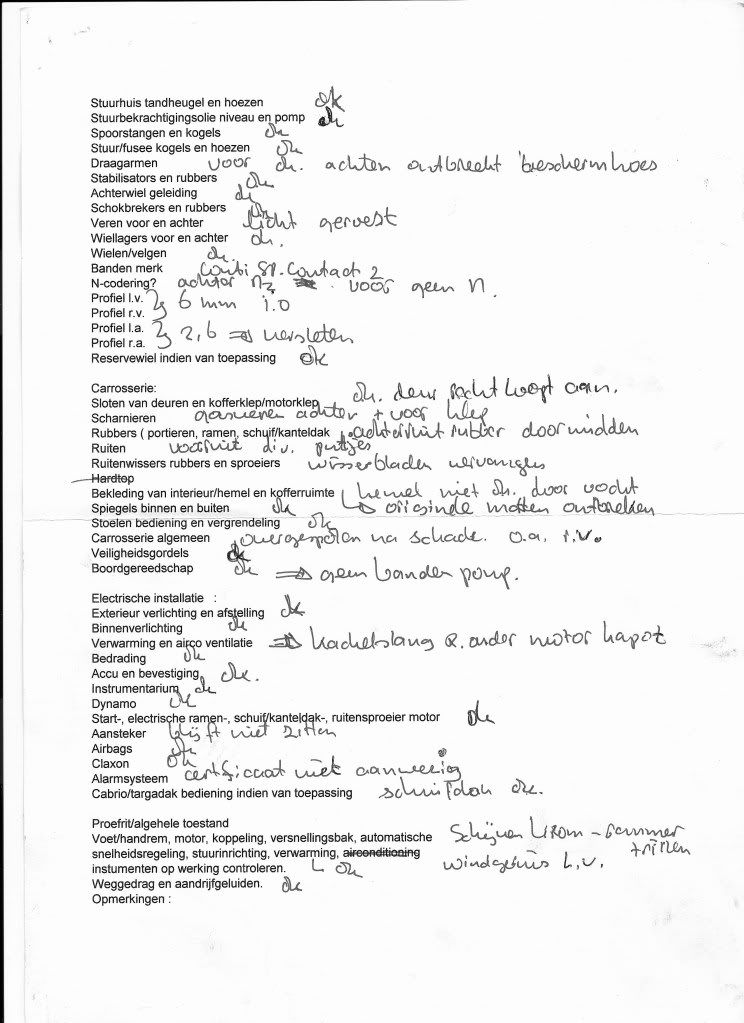 Stuurhuis tandheugel en hoezen ok
Stuurbekrachtigingsolie niveau en pomp ok
Spoorstangen en kogels ok
Stuur/fusee kogels en hoezen ok
Draagarmen voor ok. achter ontbreekt beschermhoes
Stabilisators en rubbers ok
Achterwiel geleiding ok
Schokbrekers en rubbers ok
Veren voor en achter licht geroest
Wiellagers voor en achter ok.
Wielen/velgen ok.
Banden merk Conti SP. Contact 2
N-codering? achter N2 voor geen N.
Profiel l.v. 6 mm i.o
Profiel r.v.
Profiel l.a. 2,6 => versleten
Profiel r.a.
Reservewiel indien van toepassing ok
Carrosserie:
Sloten van deuren en kofferklep/motorklep ok. deur recht loopt aan.
Scharnieren achter + voor klep
Rubbers ( portieren, ramen, schuif/kanteldak achterruit rubber doormidden
Ruiten voorruit div. putjes
Ruitenwissers rubbers en sproeiers wisserbladen vervangen
Hardtop
Bekleding van interieur/hemel en kofferruimte hemel niet ok. door vocht
Spiegels binnen en buiten ok originele matten ontbreken
Stoelen bediening en vergrendeling ok
Carrosserie algemeen overgespoten na schade. o.a. r.v.
Veiligheidsgordels ok
Boordgereedschap ok => geen banden pomp.
Electrische installatie :
Exterieur verlichting en afstelling ok
Binnenverlichting ok
Verwarming en airco ventilatie => kachelslang R. onder motor kapot
Bedrading ok
Accu en bevestiging ok.
Instrumentarium ok
Dynamo ok
Start-, electrische ramen-, schuif/kanteldak-, ruitensproeier motor ok
Aansteker blijft niet zitten
Airbags ok
Claxon ok
Alarmsysteem certificaat niet aanwezig
Cabrio/targadak bediening indien van toepassing schuifdak ok.
Proefrit/algehele toestand
Voet/handrem, motor, koppeling, versnellingsbak, automatische Schijven krom -
snelheidsregeling, stuurinrichting, verwarming, airconditioning trillen
instumenten op werking controleren. ok windgeruis L.V.
Weggedrag en aandrijfgeluiden. ok
Opmerkingen :